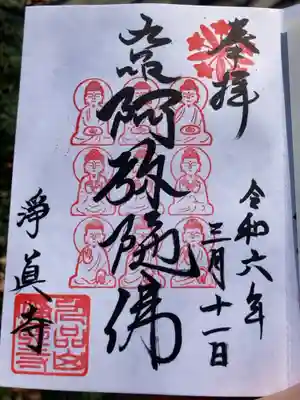 奉拝
令和六年
三月十一日
九品阿弥陀佛
淨真寺